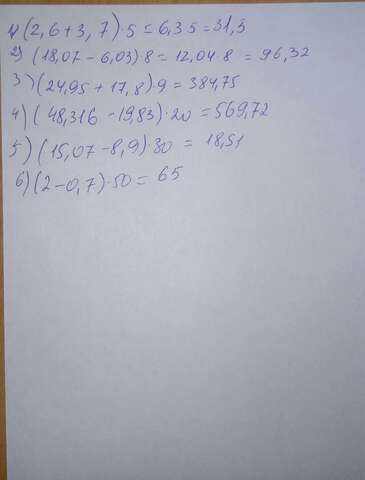 1) (2,6+3,7)·5=6,3 5=31,5
2) (18,07-6,03)·8=12,04·8=96,32
3) (24,95+17,8)·9=384,75
4) (48,316-19,83)·20=569,72
5) (15,07-8,9)·30=18,51
6) (2-0,7)·50=65